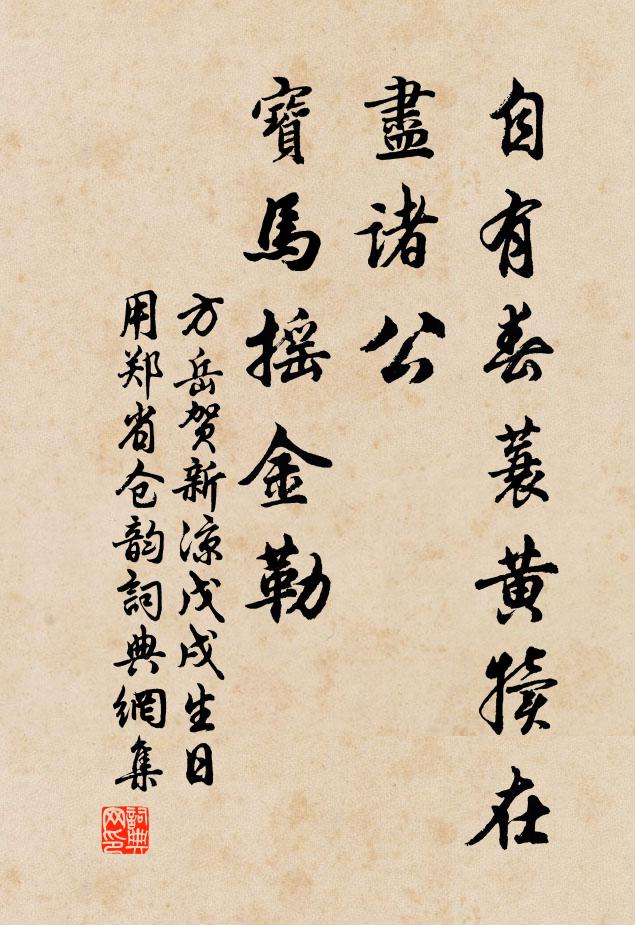 自有春蓑黄犢在
盡諸公
寶馬摇金勒
方岳贺新凉戊戌生日
用郑省仓韵詞典網集
詞典网印